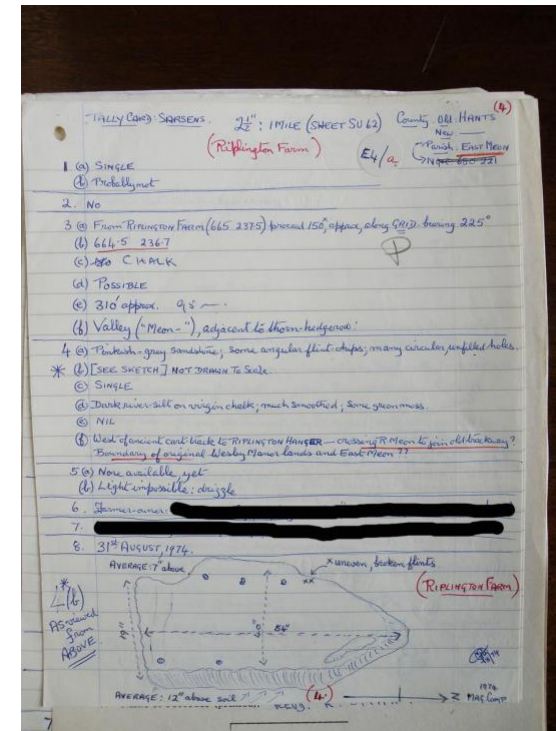 (4)
TALLY CARD: SARSENS. 2½": 1 MILE (SHEET SU 62) County Old HANTS
New —
(Riplington Farm) E4/a. Parish. EAST MEON
1 (a) SINGLE
(b) Probably not
2. No
3 (a) From RIPLINGTON FARM (665 237.5) proceed 150°, approx, along GRID bearing 225°
(b) 664.5 236.7
(c) CHALK
(d) POSSIBLE
(e) 310' approx.
(f) Valley ("Meon-"), adjacent to thorn-hedgerow.
4 (a) Pinkish-grey sandstone; some angular flint chips; many circular, unfilled holes.
* (b) [SEE SKETCH] NOT DRAWN To Scale.
(c) SINGLE
(d) Dark river-silt on virgin chalk; much smoothed; some green moss.
(e) NIL
(f) West of ancient cart track to RIPLINGTON HANGER — crossing R Meon to join old trackway?
Boundary of original Westbury Manor lands and East Meon ??
5 (a) None available, yet
(b) Light impossible: drizzle
6. Farmer-owner:
7.
8. 31st AUGUST, 1974.
AVERAGE: 7" above
x uneven, broken flints
xx
(RIPLINGTON FARM)
* 4(b)
AS viewed
from
ABOVE
19"
40"
84"
AVERAGE: 12" above soil
(4.)
Z
1974
MAG COMP
7